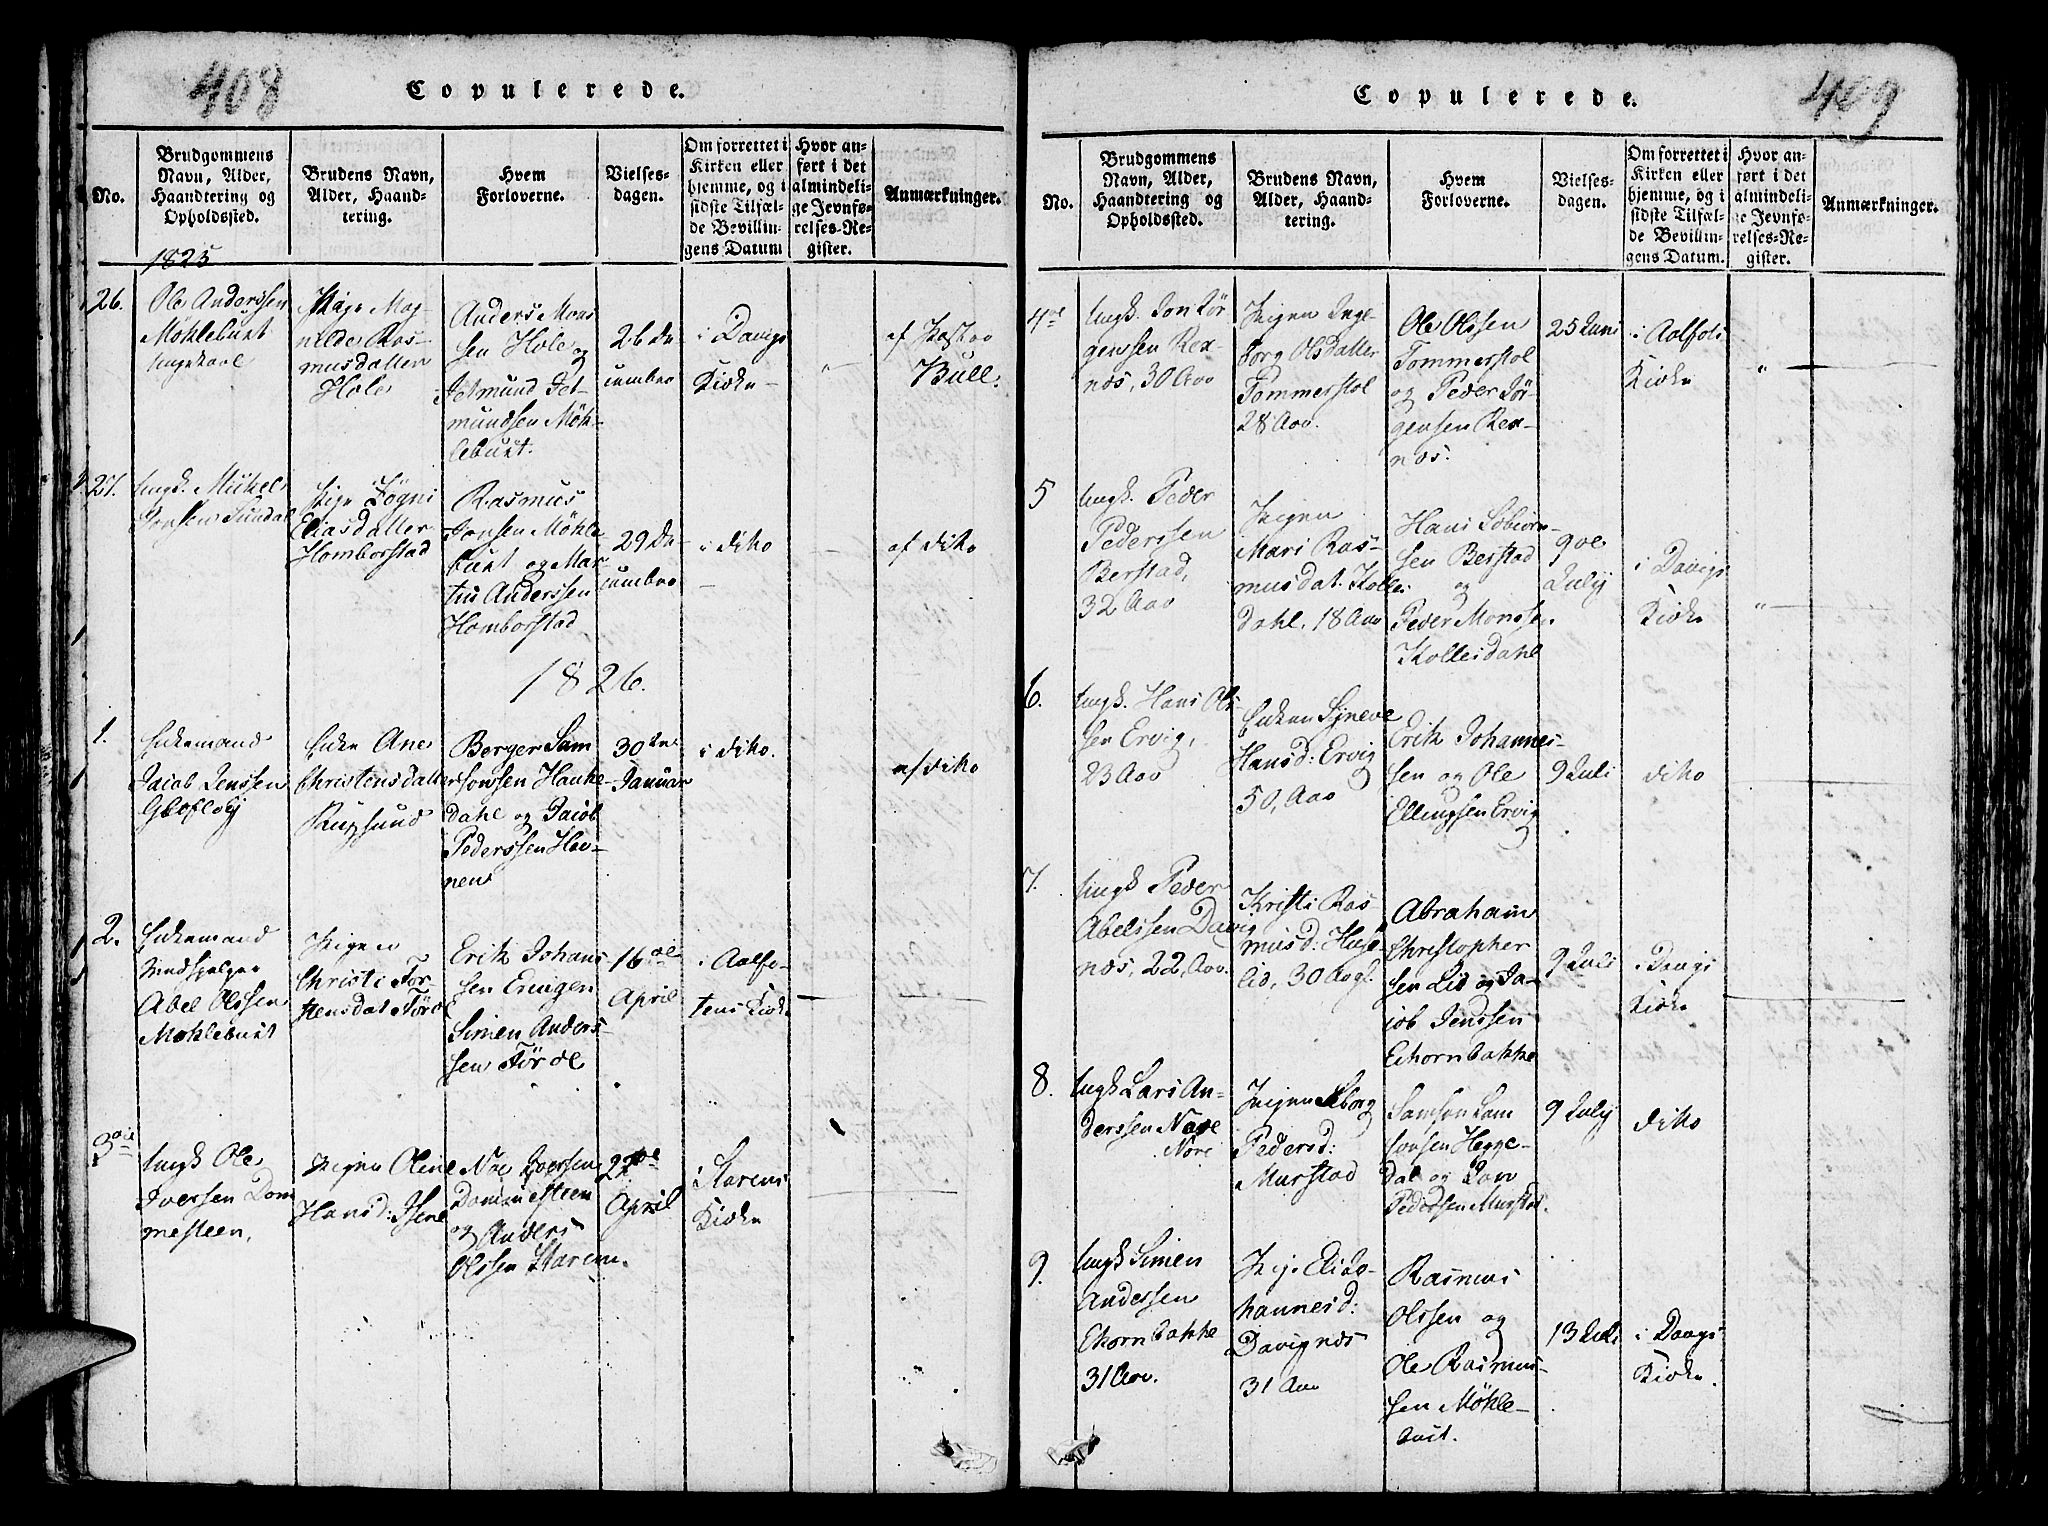 408
Copulerede.
No.
Brudgommens
Navn, Alder,
Haandtering og
Opholdssted.
Brudens Navn,
Alder, Haand-
tering.
Hvem
Forloverne.
Vielses-
dagen.
Om forrettet i
Kirken eller
hjemme, og i
sidste Tilfæl-
de Bevillin-
gens Datum
Hvor an-
ført i det
almindeli-
ge Jevnfø-
relses-Re-
gister.
Anmærkninger.
1825
26.
Ole Anderssen
Möhlebust
Ungkarl
Pige Mag-
nilde Ras-
musdatter
Hole
Anders Mons
sen Hole og
Jetmund Jet-
mundsen Möh-
lebust.
26 De-
cember
i Davigs
Kirke
af Pastor
Bull.
27.
Ungk. Mikel
Jensen Sundal
Pige Sögni
Eliasdatter
Homborstad
Rasmus
Jonsen Möhle
bust og Mar-
tin Anderssen
Homborstad
29 De-
cember
i dito
af dito
1826.
1.
Enkemand
Jacob Jenssen
Enke Ane
Christensdatter
Rugsund
Berger Sam
sonsen Hauke
dahl og Jacob
Pederssen Hav-
nen
30te
Januar
i dito.
af dito
2.
Enkemand
Abel Olssen
Mohlebust
Pigen
Christi Tor-
stensdat Förde
Erik Johans
sen Ervigen
Simen Anders-
sen Förde
16de
April
i Aalfo-
tens Kirke
3die
Ungk Ole
Iversen Dom
mesteen,
Pigen Oline
Hansd: Isene
Noe Iversen
Dommesteen
og Anders
Olssen Starem.
April
i Starens
Kirke
409
Copulerede.
No.
Brudgommens
Navn, Alder,
Haandtering og
Opholdssted.
Brudens Navn,
Alder, Haand-
tering.
Hvem
Forloverne.
Vielses-
dagen.
Om forrettet i
Kirken eller
hjemme, og i
sidste Tilfæl-
de Bevillin-
gens Datum.
Hvor an-
ført i det
almindeli-
ge Jevnfø-
relses-Re-
gister.
Anmærkninger.
4de
Ungk. Jon Jör
gensen Rex-
nos, 30 Aar
Pigen Inge-
borg Olsdatter
Tommerstol
28 Aar.
Ole Olssen
Tommerstol
og Peder Jör-
gensen Rex-
nos.
25 Juni
i Aalfots
Kirke
5
Ungk. Peder
Pederssen
Berstad,
32 Aar
Pigen
Mari Ras-
musdat. Kolles
dahl, 18 Aar
Hans Sobiorn-
sen Berstad
og
Peder Monssen
Kollesdahl
9de
July
i Davigs
Kirke
6.
Ungk. Hans Ols
sen Ervig,
23 Aar
Enken Syneve
Hansd: Ervig
50, Aar
Erik Johannes-
sen og Ole
Ellingsen Ervig
9 Juli
dito
7.
Ungk Peder
Abelssen Davig
nos, 22, Aar.
Kristi Ras
musd: Huse
lid, 30 Aar.
Abraham
Christopher
sen Lid og Ja-
cob Jenssen
Echornbakke
9 Juli
i Davigs
Kirke
8.
Ungk Lars An-
derssen Nore
Nore
Pigen Siborg
Pedersd:
Murstad
Samson Sam
sonsen Hegge-
dal og Lars
Pederssen Murstad.
9 July
dito
9.
Ungk Simen
Anderssen
Ekornbakke
31 Aar.
Pige Eli Jo-
hannesd:
Davignos
31 Aar
Rasmus
Olssen og
Ole Rasmus-
sen Möhle-
bust.
13 Juli
i Davigs
Kirke.